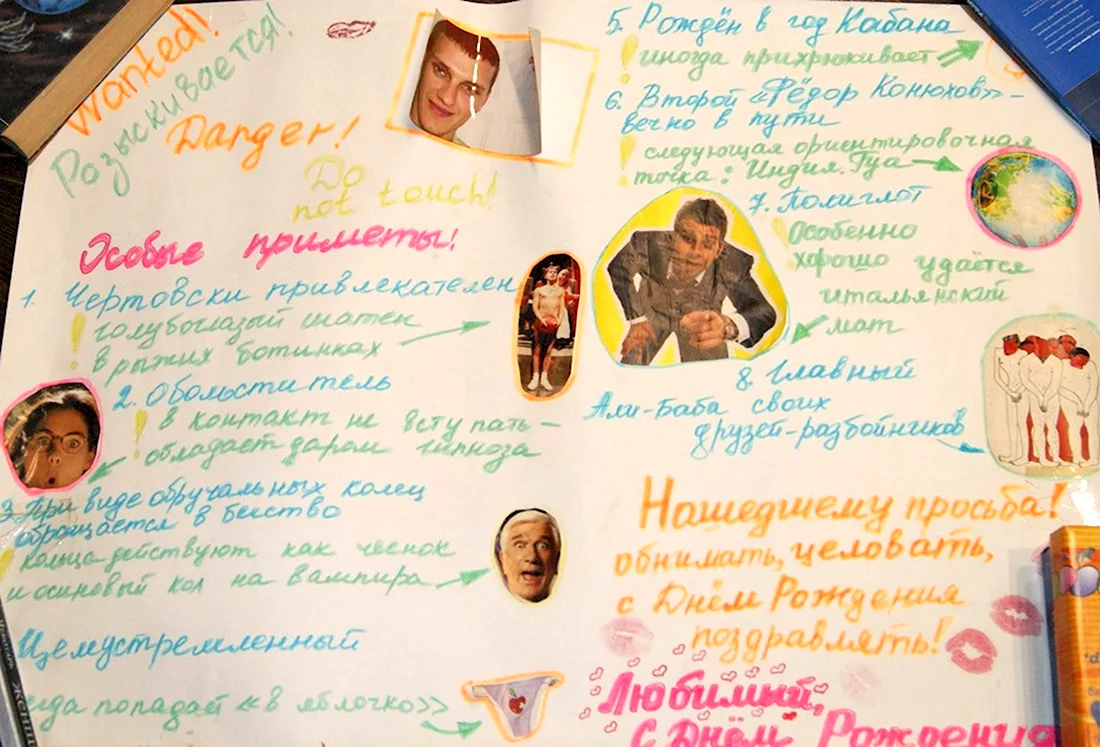 Wanted!
Разыскивается!
Danger!
Do
not touch!
Особые приметы!
1. Чертовски привлекателен
голубоглазый шатен
в рыжих ботинках
2. Обольститель
в контакт не вступать -
обладает даром гипноза
3. При виде обручальных колец
обращается в бегство
кольца действуют как чеснок
и осиновый кол на вампира
Целеустремленный
попадай «в яблочко»
5. Рождён в год Кабана
иногда прихрюкивает
6. Второй «Фёдор Конюхов» -
вечно в пути
следующая ориентировочная
точка: Индия. Гуа
7. Полиглот
Особенно
хорошо удаётся
итальянский
мат
8. Главный
Али-Баба своих
друзей-разбойников
Нашедшему просьба!
обнимать, целовать,
с Днём Рождения
поздравлять!
Любимый,
с Днём Рождения